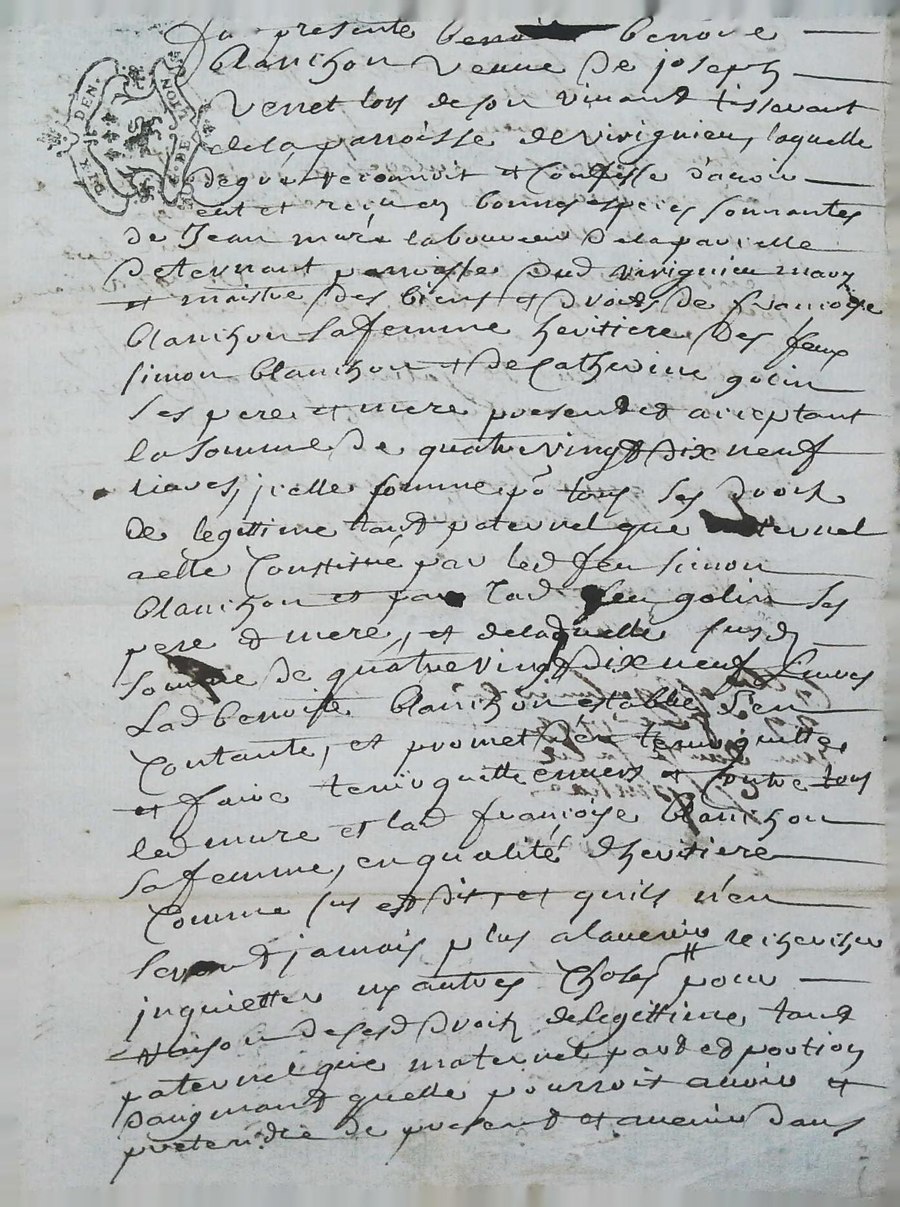 DIX DEN
G. DE
NOIT. LION
Du presente benoi benoite
blanchon veuve de joseph
Venet lors de son vivant tisserant
de la parroisse de virignieu, laquelle
de gré reconnoit et Confesse d'avoir
eut et reçu en bonnes espeices sonnantes
de Jean mure laboureur de la parcelle
de ternant parroisse dud virignieu mary
et maistre des biens et droits de francoise
blanchon sa femme heritiere des feux
simon blanchon et de Catherine golin
ses pere et mere present et acceptant
la somme de quatre vingt dix neuf
livres, jcelle somme po tous ses droits
de legittime tant paternel que maternel
a elle Constitué par led feu simon
blanchon et par lad feu golin ses
pere et mere, et de laquelle susd
somme de quatre vingt dix neuf Livres
Lad benoiste blanchon est Contante
Contante, et promet n'en tenir quitte
et faire tenir quitte envers et Contre tous
led mure et lad françoise blanchon
sa femme, en qualité dheritiere
Comme sus est dit, et quils n'en
seront jamais plus a lavenir rechercher
jnquietter ny autres choses pour
Raison de sesd droits de legittime tant
paternel que maternel part et portion
daugmant quelle pourroit avoir et
pretendre de present et avenir dans